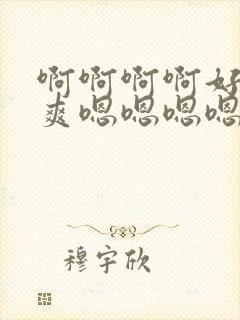 啊啊啊啊好
爽嗯嗯嗯嗯
穆宇欣